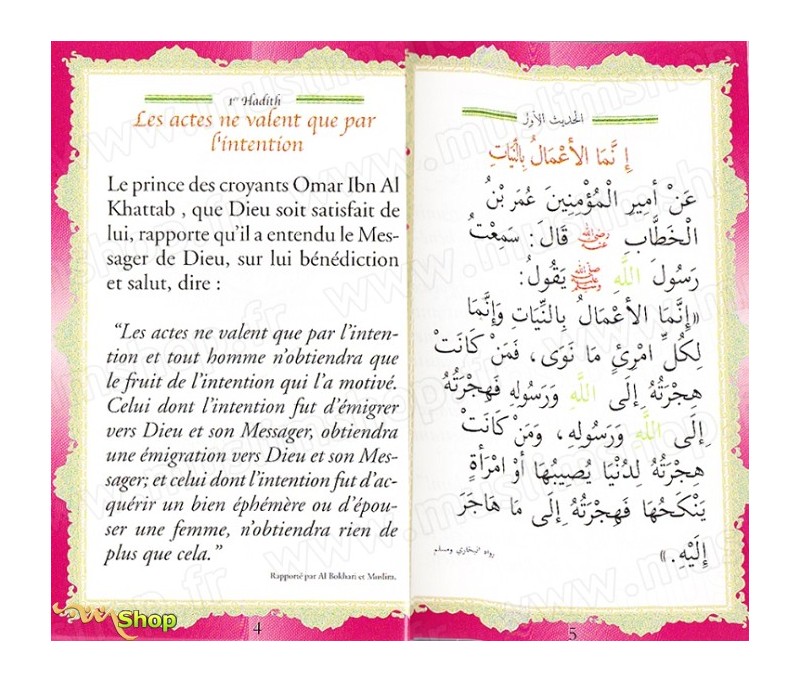 1er Hadith
Les actes ne valent que par
l'intention
Le prince des croyants Omar Ibn Al
Khattab , que Dieu soit satisfait de
lui, rapporte qu'il a entendu le Mes-
sager de Dieu, sur lui bénédiction
et salut, dire :
“Les actes ne valent que par l'inten-
tion et tout homme n'obtiendra que
le fruit de l'intention qui l'a motivé.
Celui dont l'intention fut d'émigrer
vers Dieu et son Messager, obtiendra
une émigration vers Dieu et son Mes-
sager; et celui dont l'intention fut d'ac-
quérir un bien éphémère ou d'épou-
ser une femme, n'obtiendra rien de
plus que cela.”
Rapporté par Al Bokhari et Muslim.
4
الحديث الأول
إِنَّمَا الأَعْمَالُ بِالنِّيَّاتِ
عَنْ أَمِيرِ الْمُؤْمِنِينَ عُمَرَ بْنُ
الْخَطَّابِ رضي الله عنه قَالَ: سَمِعْتُ
رَسُولَ اللَّهِ ﷺ يَقُولُ:
«إِنَّمَا الأَعْمَالُ بِالنِّيَّاتِ وَإِنَّمَا
لِكُلِّ امْرِئٍ مَا نَوَى، فَمَنْ كَانَتْ
هِجْرَتُهُ إِلَى اللَّهِ وَرَسُولِهِ فَهِجْرَتُهُ
إِلَى اللَّهِ وَرَسُولِهِ، وَمَنْ كَانَتْ
هِجْرَتُهُ لِدُنْيَا يُصِيبُهَا أَوْ امْرَأَةٍ
يَنْكَحُهَا فَهِجْرَتُهُ إِلَى مَا هَاجَرَ
إِلَيْهِ.»
رواه البخاري ومسلم
5
Shop
www.muslimshop.fr